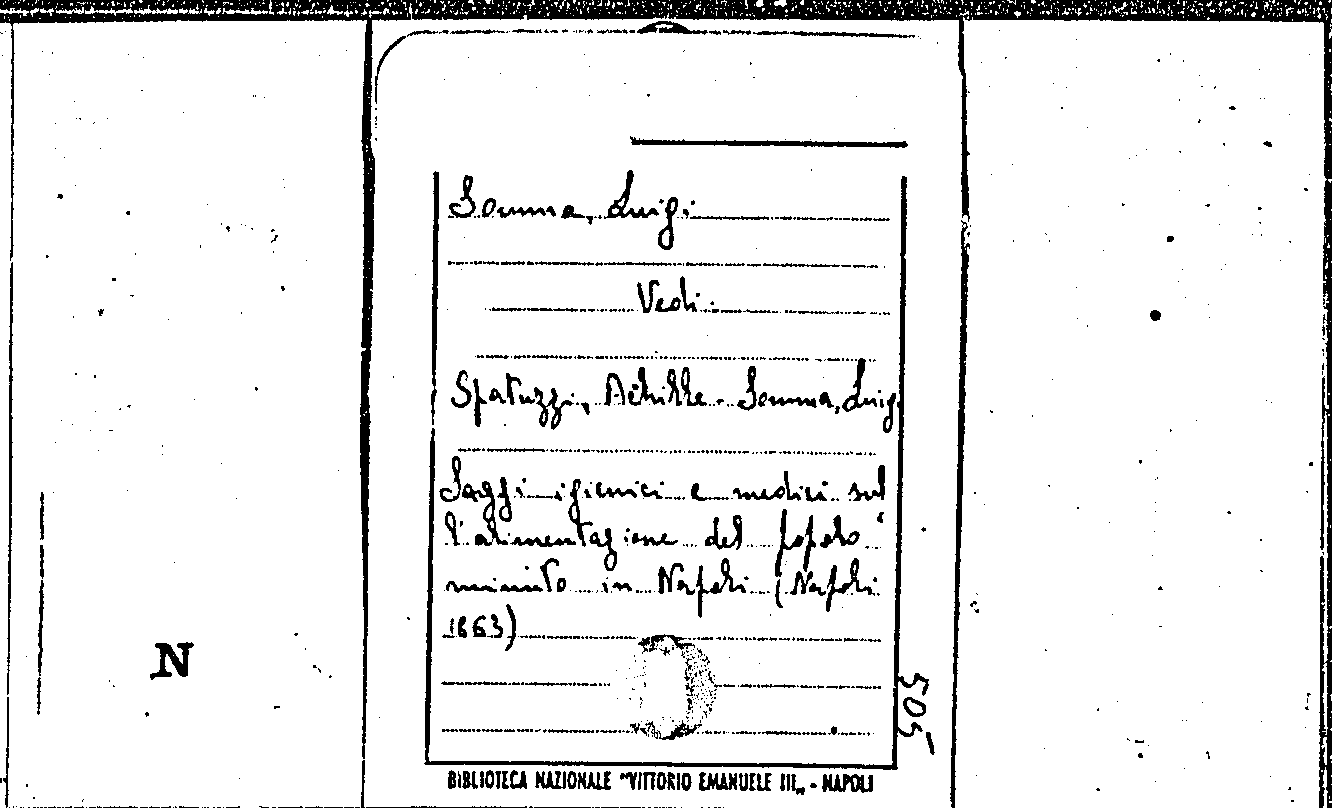 Somma, Luigi
Vedi:
Spatuzzi, Achille - Somma, Luigi
Saggi igienici e medici sul
l'alimentazione del popolo
minuto in Napoli (Napoli
1863)
N
505
BIBLIOTECA NAZIONALE "VITTORIO EMANUELE III„ - NAPOLI